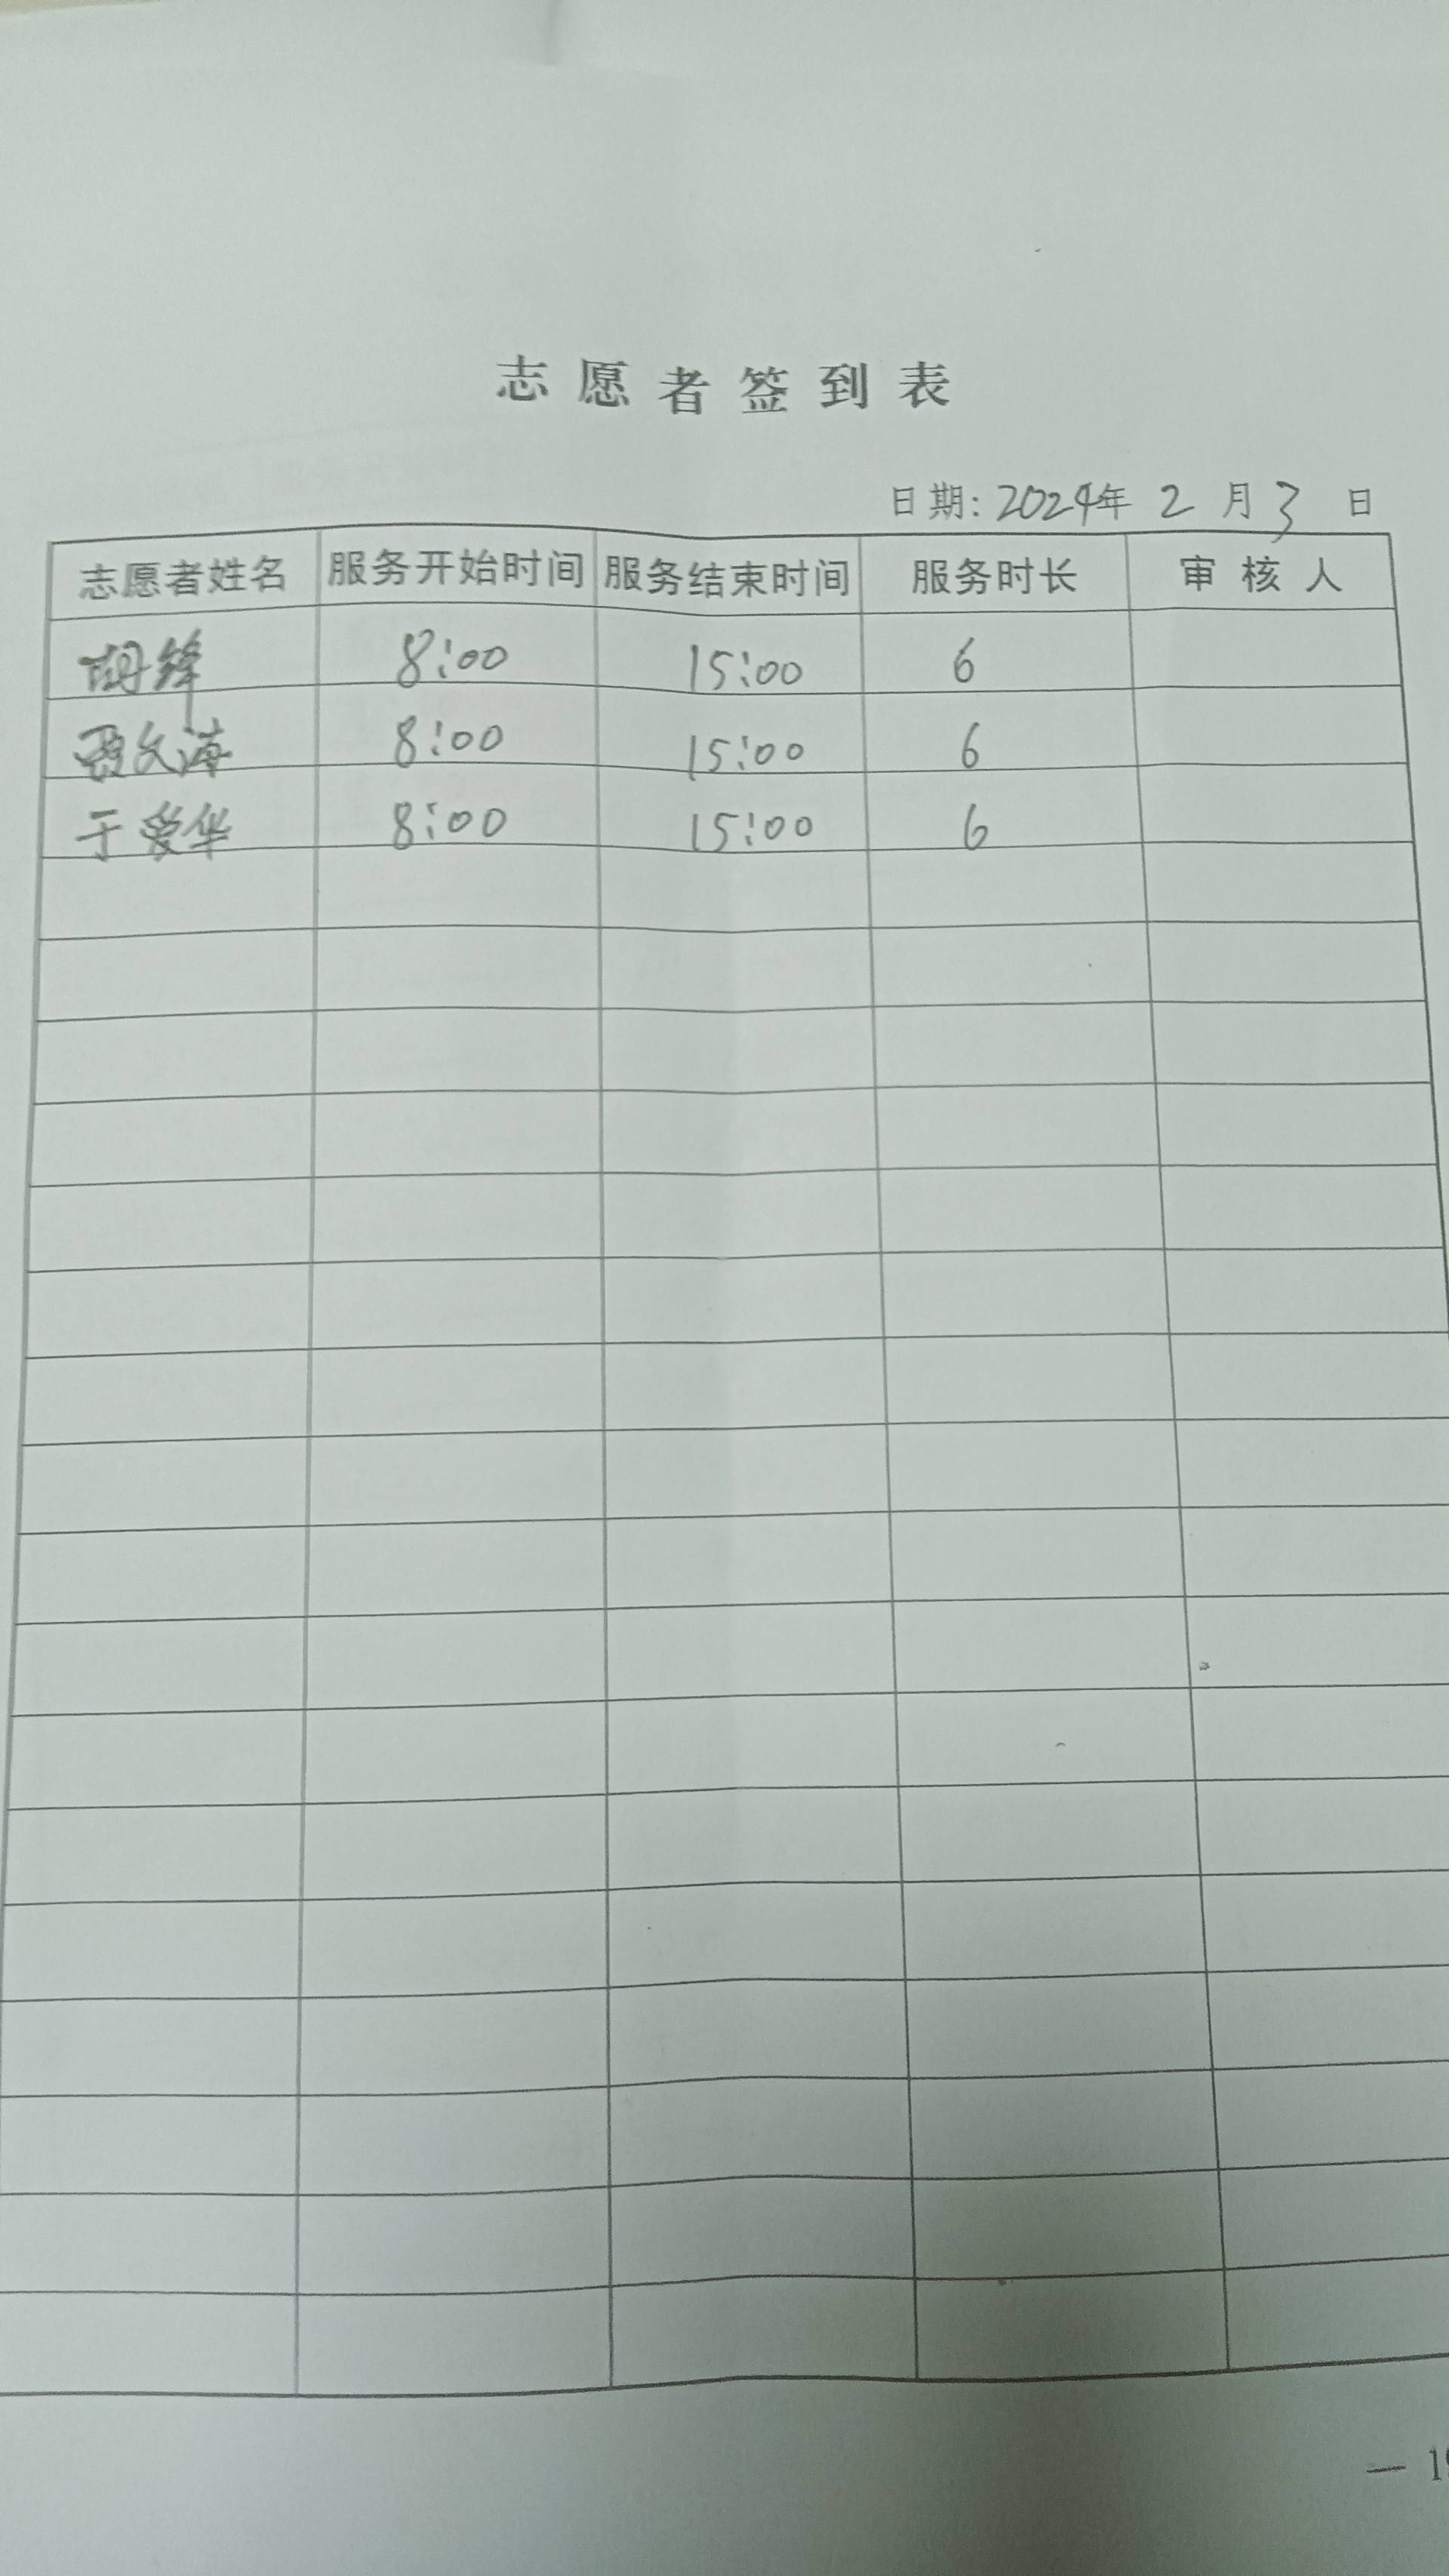 志愿者签到表
日期: 2024年 2 月 3 日
志愿者姓名 服务开始时间 服务结束时间 服务时长 审核人
胡锋 8:00 15:00 6
贾文海 8:00 15:00 6
于爱华 8:00 15:00 6